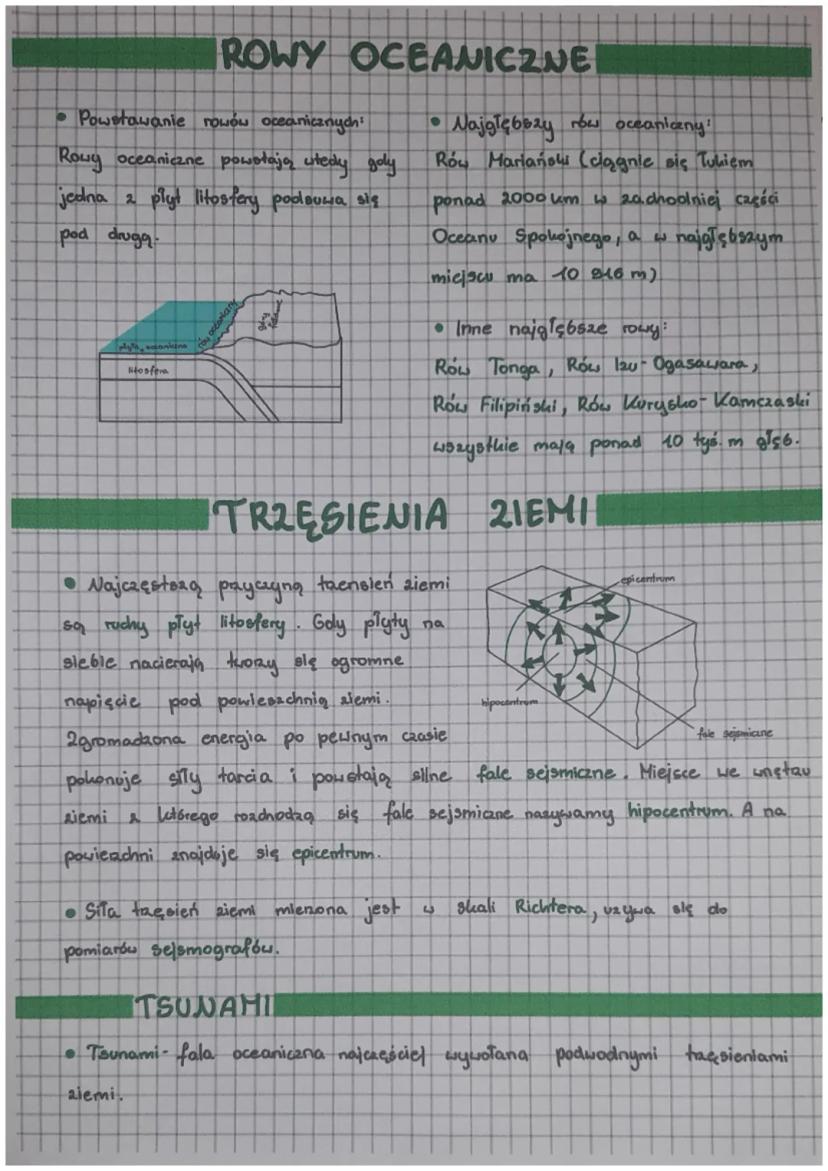 ROWY OCEANICZNE
• Powstawanie rowów oceanicznych:
Rowy oceaniczne powstają wtedy gdy
jedna z płyt litosfery podsuwa się
pod drugą.
płyta oceaniczna
rów oceaniczny
litosfera
• Najgłębszy rów oceaniczny:
Rów Mariański (ciągnie się łukiem
ponad 2000 km w zachodniej części
Oceanu Spokojnego, a w najgłębszym
miejscu ma 10 916 m)
• Inne najgłębsze rowy:
Rów Tonga, Rów Izu-Ogasawara,
Rów Filipiński, Rów Kurylsko-Kamczaski
wszystkie mają ponad 10 tyś. m głęb.
TRZĘSIENIA ZIEMI
• Najczęstszą przyczyną trzensień ziemi
są ruchy płyt litosfery. Gdy płyty na
siebie nacierają tworzy się ogromne
napięcie pod powierzchnią ziemi.
Zgromadzona energia po pewnym czasie
pokonuje siły tarcia i powstają silne fale sejsmiczne. Miejsce we wnętrzu
ziemi z którego rozchodzą się fale sejsmiczne nazywamy hipocentrum. A na
powierzchni znajduje się epicentrum.
epicentrum
hipocentrum
fale sejsmiczne
• Siła trzęsień ziemi mierzona jest w skali Richtera, używa się do
pomiarów sejsmografów.
TSUNAMI
• Tsunami- fala oceaniczna najczęściej wywołana podwodnymi trzęsieniami
ziemi.